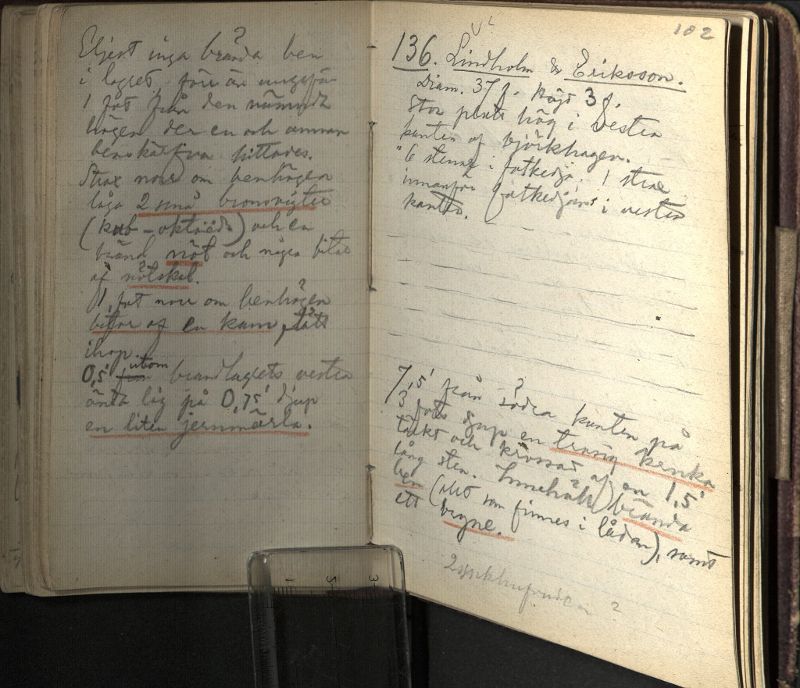 Eljest inga brända ben
i lagret, förr än ungefär
1 fot från den nämnda
högen der en och annan
benskärfva hittades.
Strax norr om benhögen
låg 2 små bronsnyter
(kub-oktaëdr) och en
bränd nöt och några bitar
af nötskal.
1 fot norr om benhögen
bitar af en kam, tätt
ihop.
0,5' utom brandlagrets vestra
ända låg på 0,75' djup
en liten jernmärla.
102
136. Lindholm & Erikson.
Diam. 37 f. Höjd 3 f.
Stor platt hög i vestra
kanten af björkhagen.
6 stenar i fotkedja. 1 sten
innanför fotkedjan i vestra
kanten.
7,5' från södra kanten på
3 fots djup en trasig kruka
täckt och krossad af en 1,5'
lång sten. Innehöll brända
ben (allt som finnes i lådan), samt
ett bryne.
2 ?